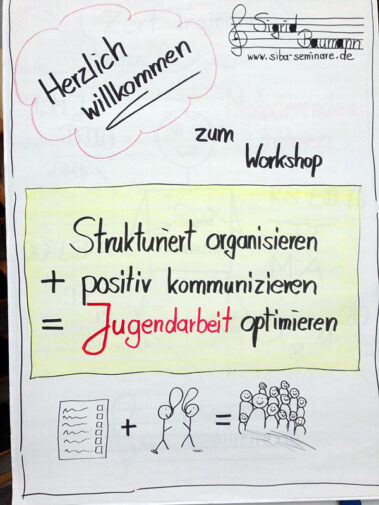 Herzlich
willkommen
Sigrid
Baumann
www.siba-seminare.de
zum
Workshop
Strukturiert organisieren
+ positiv kommunizieren
= Jugendarbeit optimieren
+ =